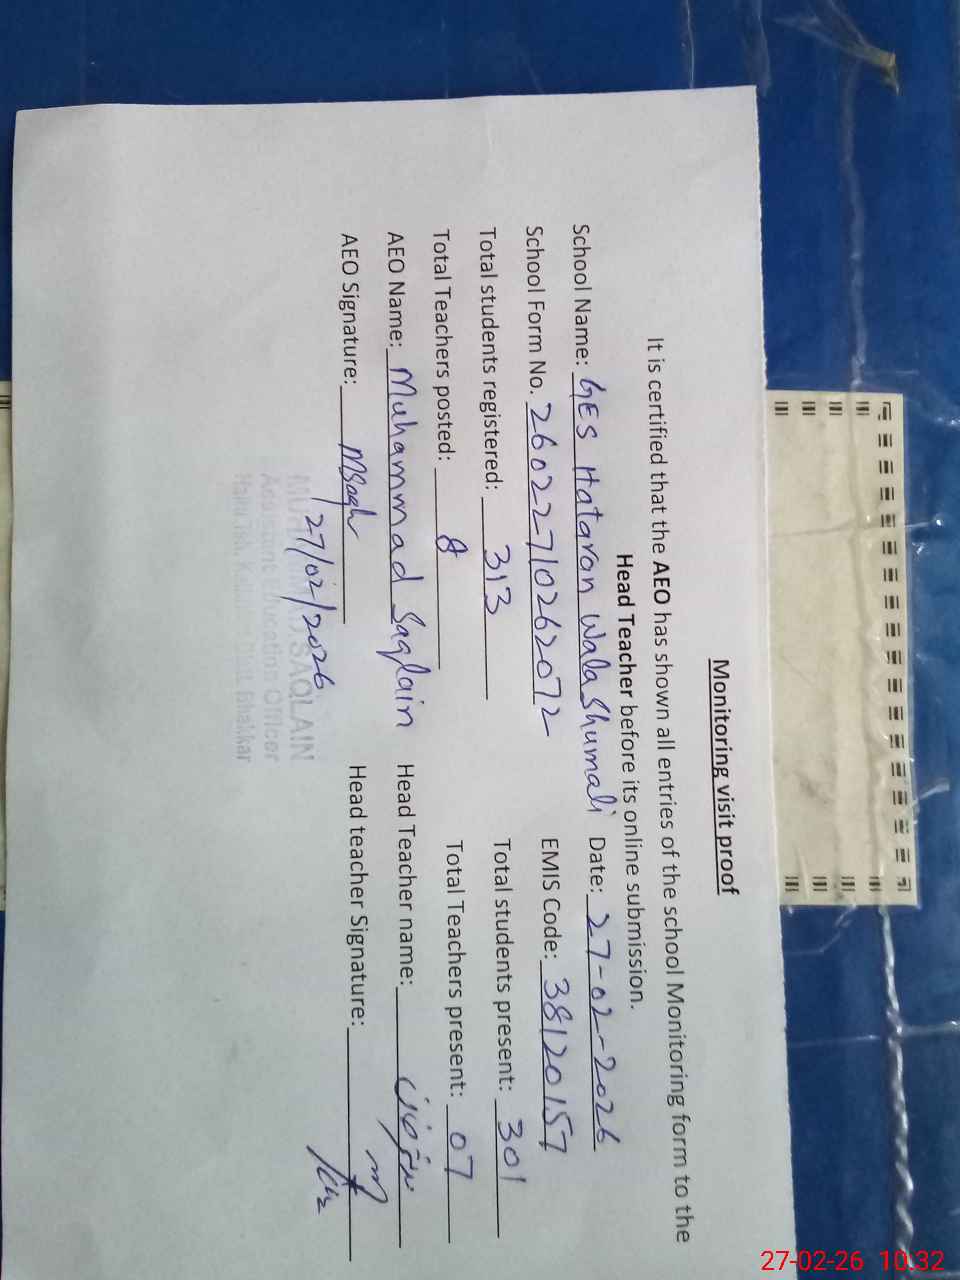 Monitoring visit proof
It is certified that the AEO has shown all entries of the school Monitoring form to the
Head Teacher before its online submission.
School Name: GES Hataran Wala Shumali Date: 27-02-2026
School Form No. 26022710262072 EMIS Code: 38120157
Total students registered: 313 Total students present: 301
Total Teachers posted: 8 Total Teachers present: 07
AEO Name: Muhammad Saqlain Head Teacher name:
AEO Signature: MSaql Head teacher Signature:
27/02/2026
SAQLAIN
Education Officer
Bhakkar
27-02-26 10:32